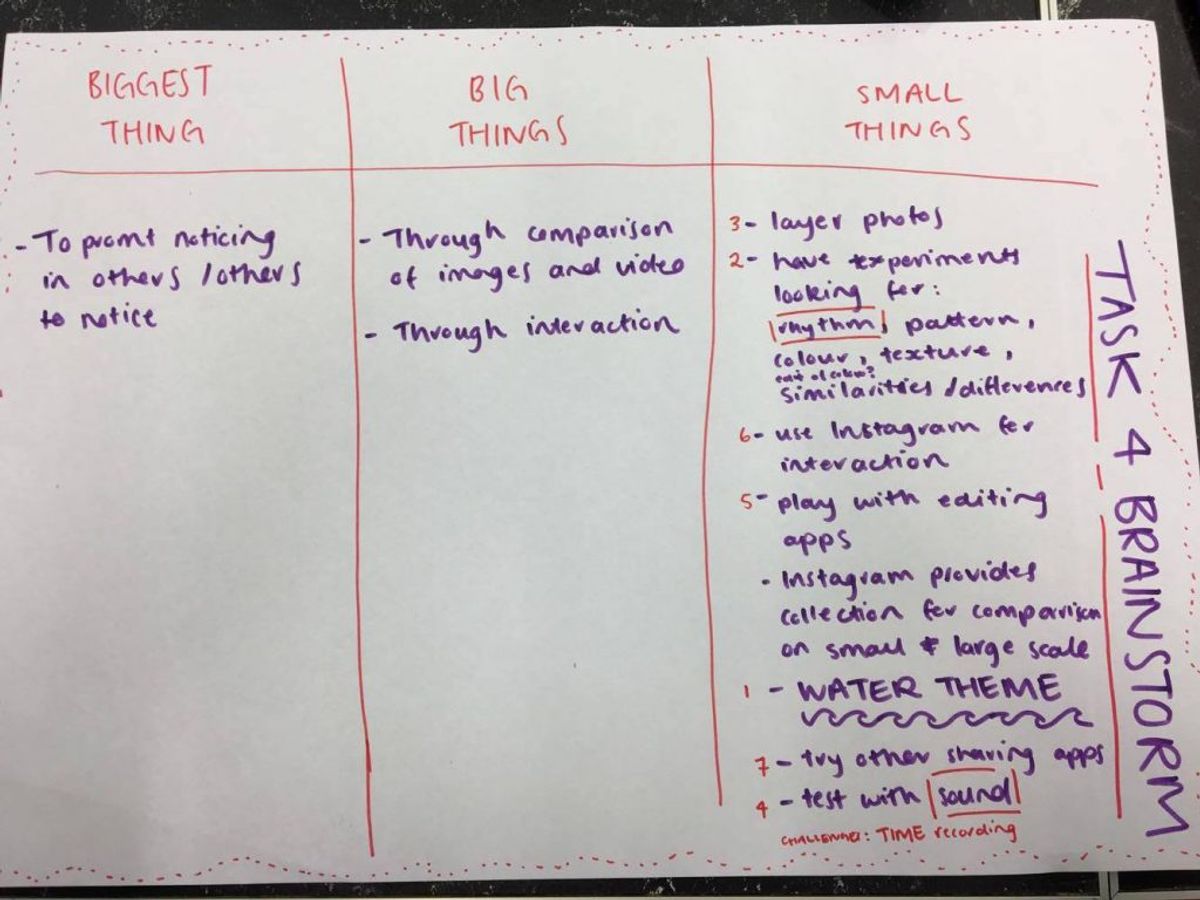 BIGGEST
THING
- To promt noticing
in others / others
to notice
BIG
THINGS
- Through comparison
of images and video
- Through interaction
SMALL
THINGS
3- layer photos
2- have experiments
looking for:
rhythm, pattern,
colour, texture,
similarities / differences
6- use Instagram for
interaction
5- play with editing
apps
- Instagram provides
collection for comparison
on small & large scale
1 - WATER THEME
7- try other sharing apps
4 - test with sound
TIME recording
TASK 4 BRAINSTORM